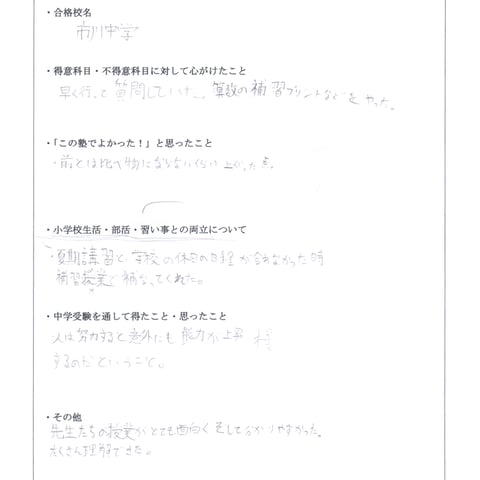 ・合格校名
市川中学
・得意科目・不得意科目に対して心がけたこと
早く行って質問していた、算数の補習プリントなどをやった。
・「この塾でよかった！」と思ったこと
・前とは比べ物にならないくらい上がった点。
・小学校生活・部活・習い事との両立について
・夏期講習と、学校の休日の日程が合わなかった時
補習授業で補なってくれた。
・中学受験を通して得たこと・思ったこと
人は努力すると意外にも能力が上昇
するのだということ。
・その他
先生たちの授業がとても面白くそして分かりやすかった。
たくさん理解できた。